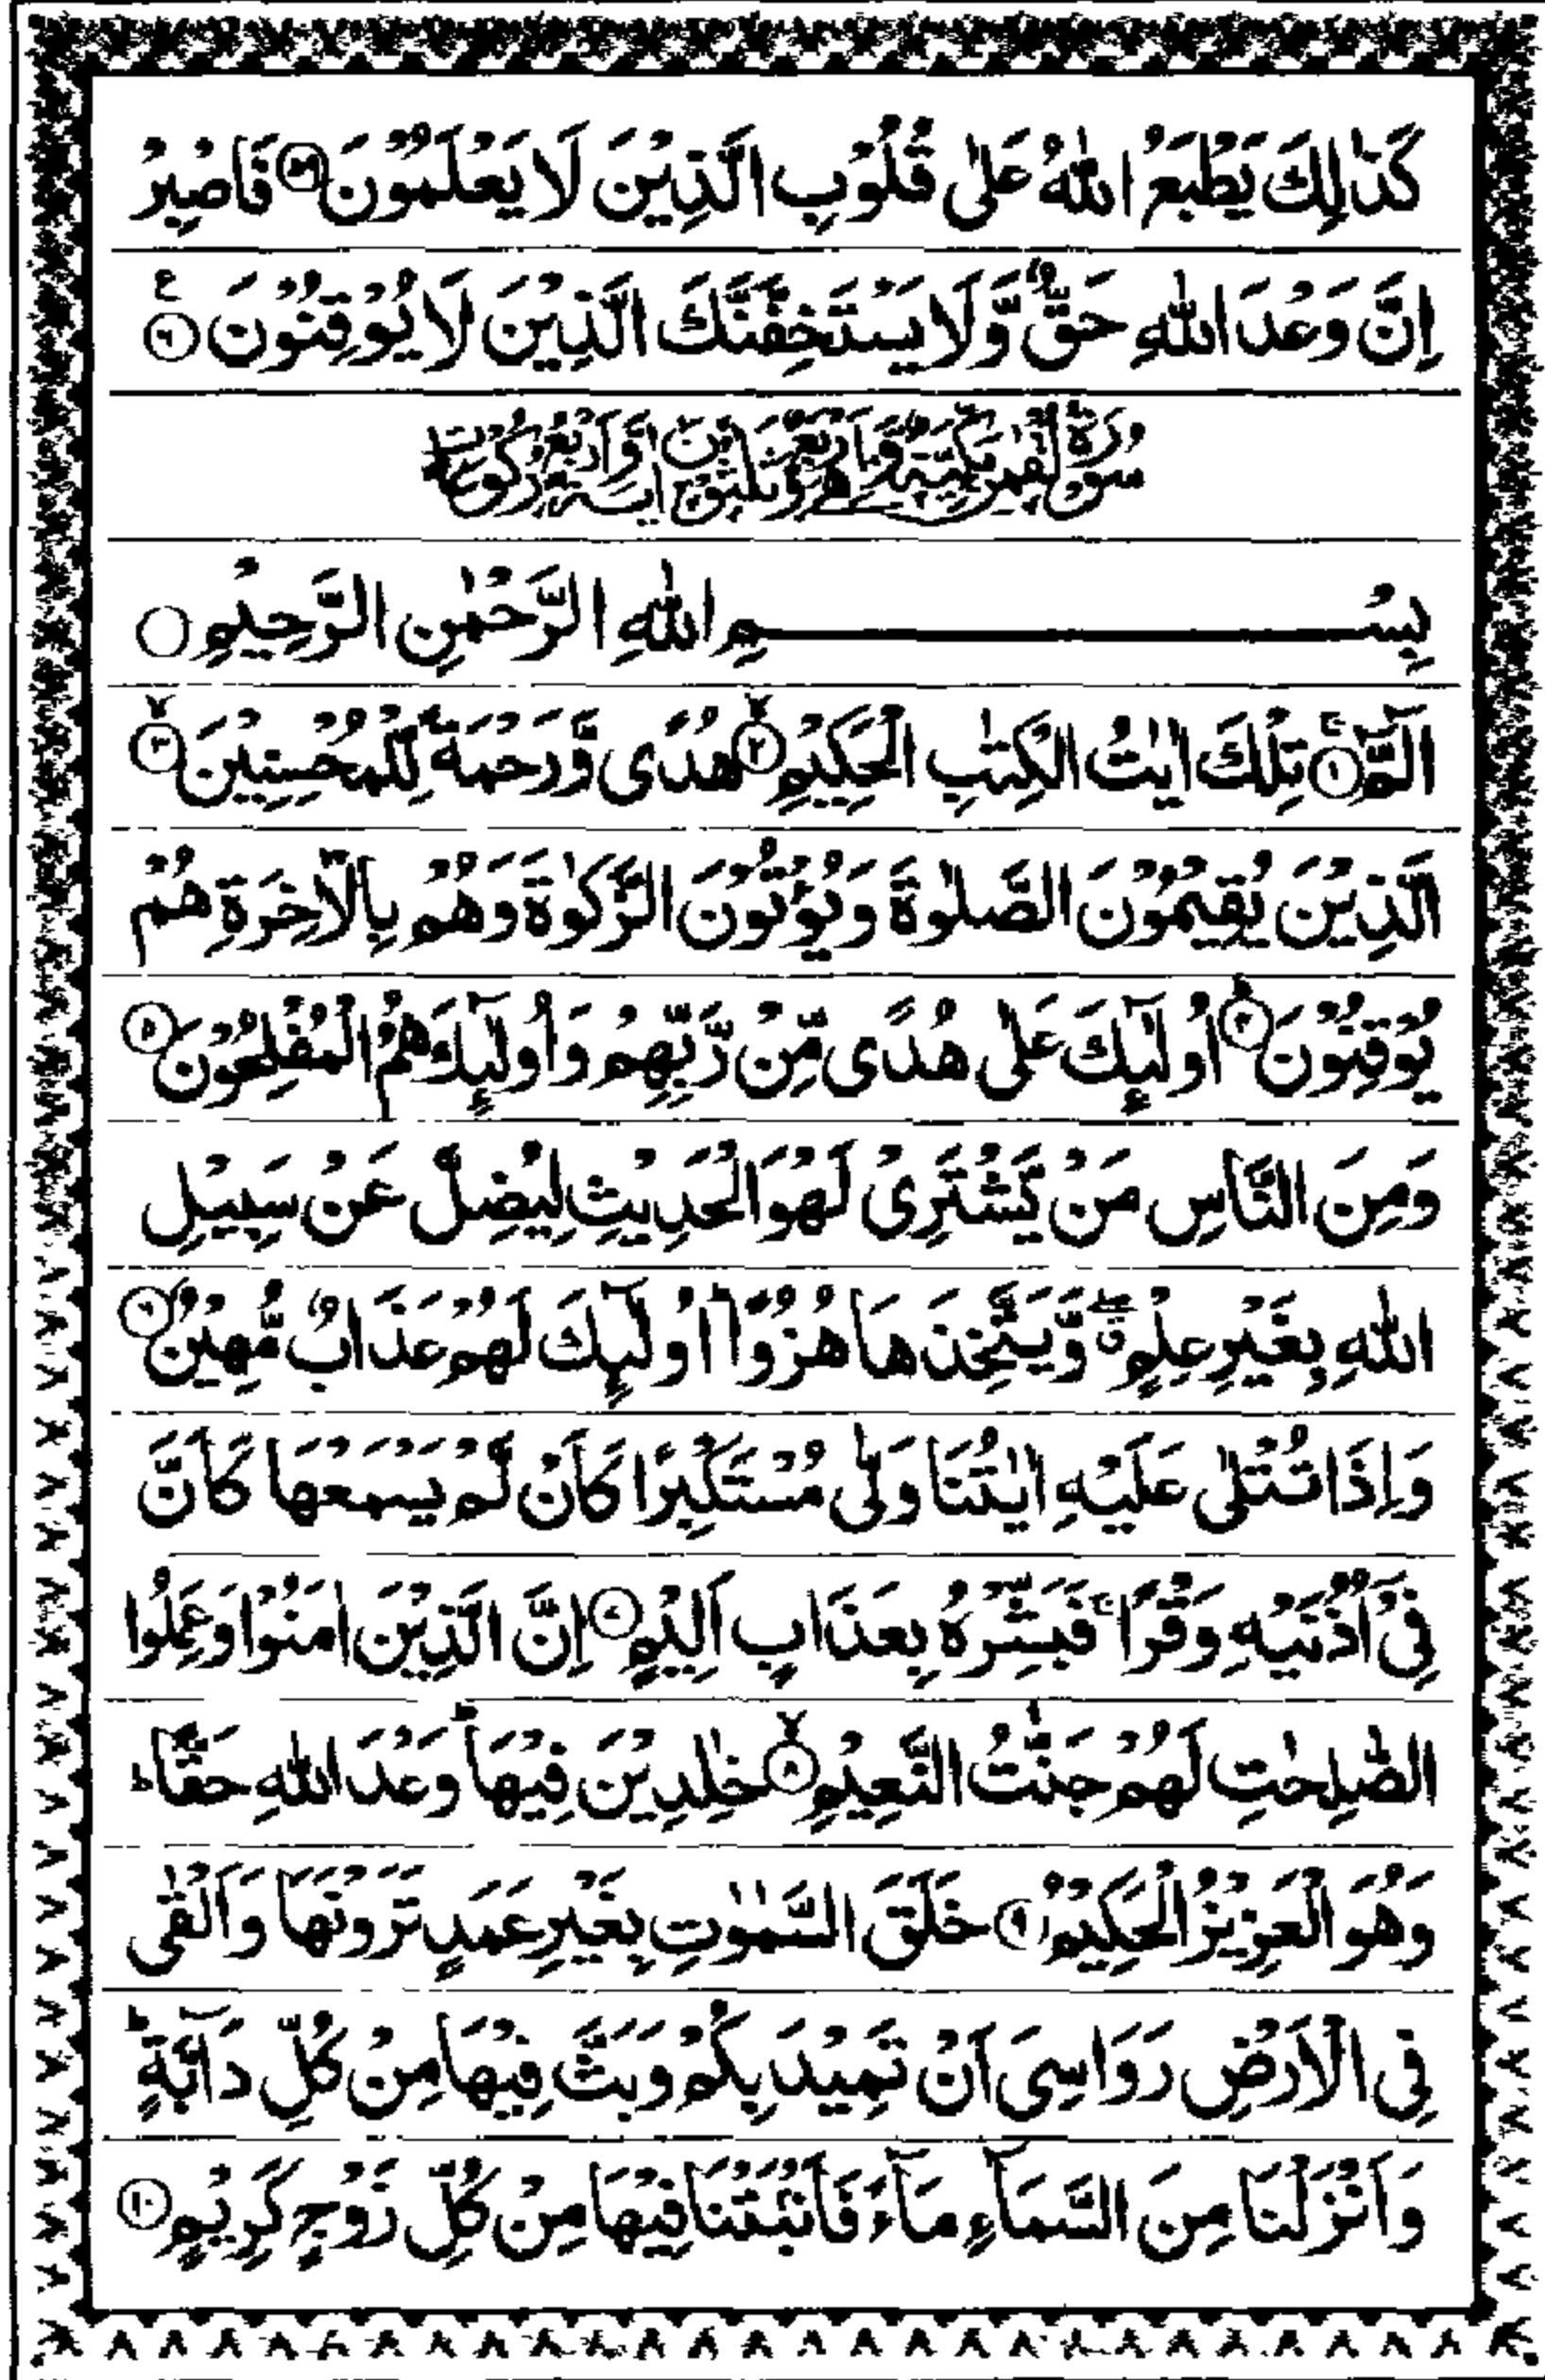 كَذٰلِكَ يَطْبَعُ اللّٰهُ عَلٰى قُلُوْبِ الَّذِيْنَ لَا يَعْلَمُوْنَ ﴿۵۹﴾ فَاصْبِرْ
اِنَّ وَعْدَ اللّٰهِ حَقٌّ وَّلَا يَسْتَخِفَّنَّكَ الَّذِيْنَ لَا يُوْقِنُوْنَ ﴿۶۰﴾ ع
سُوْرَةُ لُقْمٰنَ مَكِّيَّةٌ وَّهِيَ اَرْبَعٌ وَّثَلٰثُوْنَ اٰيَةً وَّاَرْبَعُ رُكُوْعَاتٍ
بِسْمِ اللّٰهِ الرَّحْمٰنِ الرَّحِيْمِ
الٓمّٓ ﴿۱﴾ۚ تِلْكَ اٰيٰتُ الْكِتٰبِ الْحَكِيْمِ ﴿۲﴾ۙ هُدًى وَّرَحْمَةً لِّلْمُحْسِنِيْنَ ﴿۳﴾ۙ
الَّذِيْنَ يُقِيْمُوْنَ الصَّلٰوةَ وَيُؤْتُوْنَ الزَّكٰوةَ وَهُمْ بِالْاٰخِرَةِ هُمْ
يُوْقِنُوْنَ ﴿۴﴾ؕ اُولٰٓئِكَ عَلٰى هُدًى مِّنْ رَّبِّهِمْ وَاُولٰٓئِكَ هُمُ الْمُفْلِحُوْنَ ﴿۵﴾
وَمِنَ النَّاسِ مَنْ يَّشْتَرِيْ لَهْوَ الْحَدِيْثِ لِيُضِلَّ عَنْ سَبِيْلِ
اللّٰهِ بِغَيْرِ عِلْمٍ ۖۗ وَّيَتَّخِذَهَا هُزُوًا ؕ اُولٰٓئِكَ لَهُمْ عَذَابٌ مُّهِيْنٌ ﴿۶﴾
وَاِذَا تُتْلٰى عَلَيْهِ اٰيٰتُنَا وَلّٰى مُسْتَكْبِرًا كَاَنْ لَّمْ يَسْمَعْهَا كَاَنَّ
فِيْٓ اُذُنَيْهِ وَقْرًا ۚ فَبَشِّرْهُ بِعَذَابٍ اَلِيْمٍ ﴿۷﴾ اِنَّ الَّذِيْنَ اٰمَنُوْا وَعَمِلُوا
الصّٰلِحٰتِ لَهُمْ جَنّٰتُ النَّعِيْمِ ﴿۸﴾ۙ خٰلِدِيْنَ فِيْهَا ؕ وَعْدَ اللّٰهِ حَقًّا ؕ
وَهُوَ الْعَزِيْزُ الْحَكِيْمُ ﴿۹﴾ خَلَقَ السَّمٰوٰتِ بِغَيْرِ عَمَدٍ تَرَوْنَهَا وَاَلْقٰى
فِي الْاَرْضِ رَوَاسِيَ اَنْ تَمِيْدَ بِكُمْ وَبَثَّ فِيْهَا مِنْ كُلِّ دَآبَّةٍ ؕ
وَاَنْزَلْنَا مِنَ السَّمَآءِ مَآءً فَاَنْۢبَتْنَا فِيْهَا مِنْ كُلِّ زَوْجٍ كَرِيْمٍ ﴿۱۰﴾